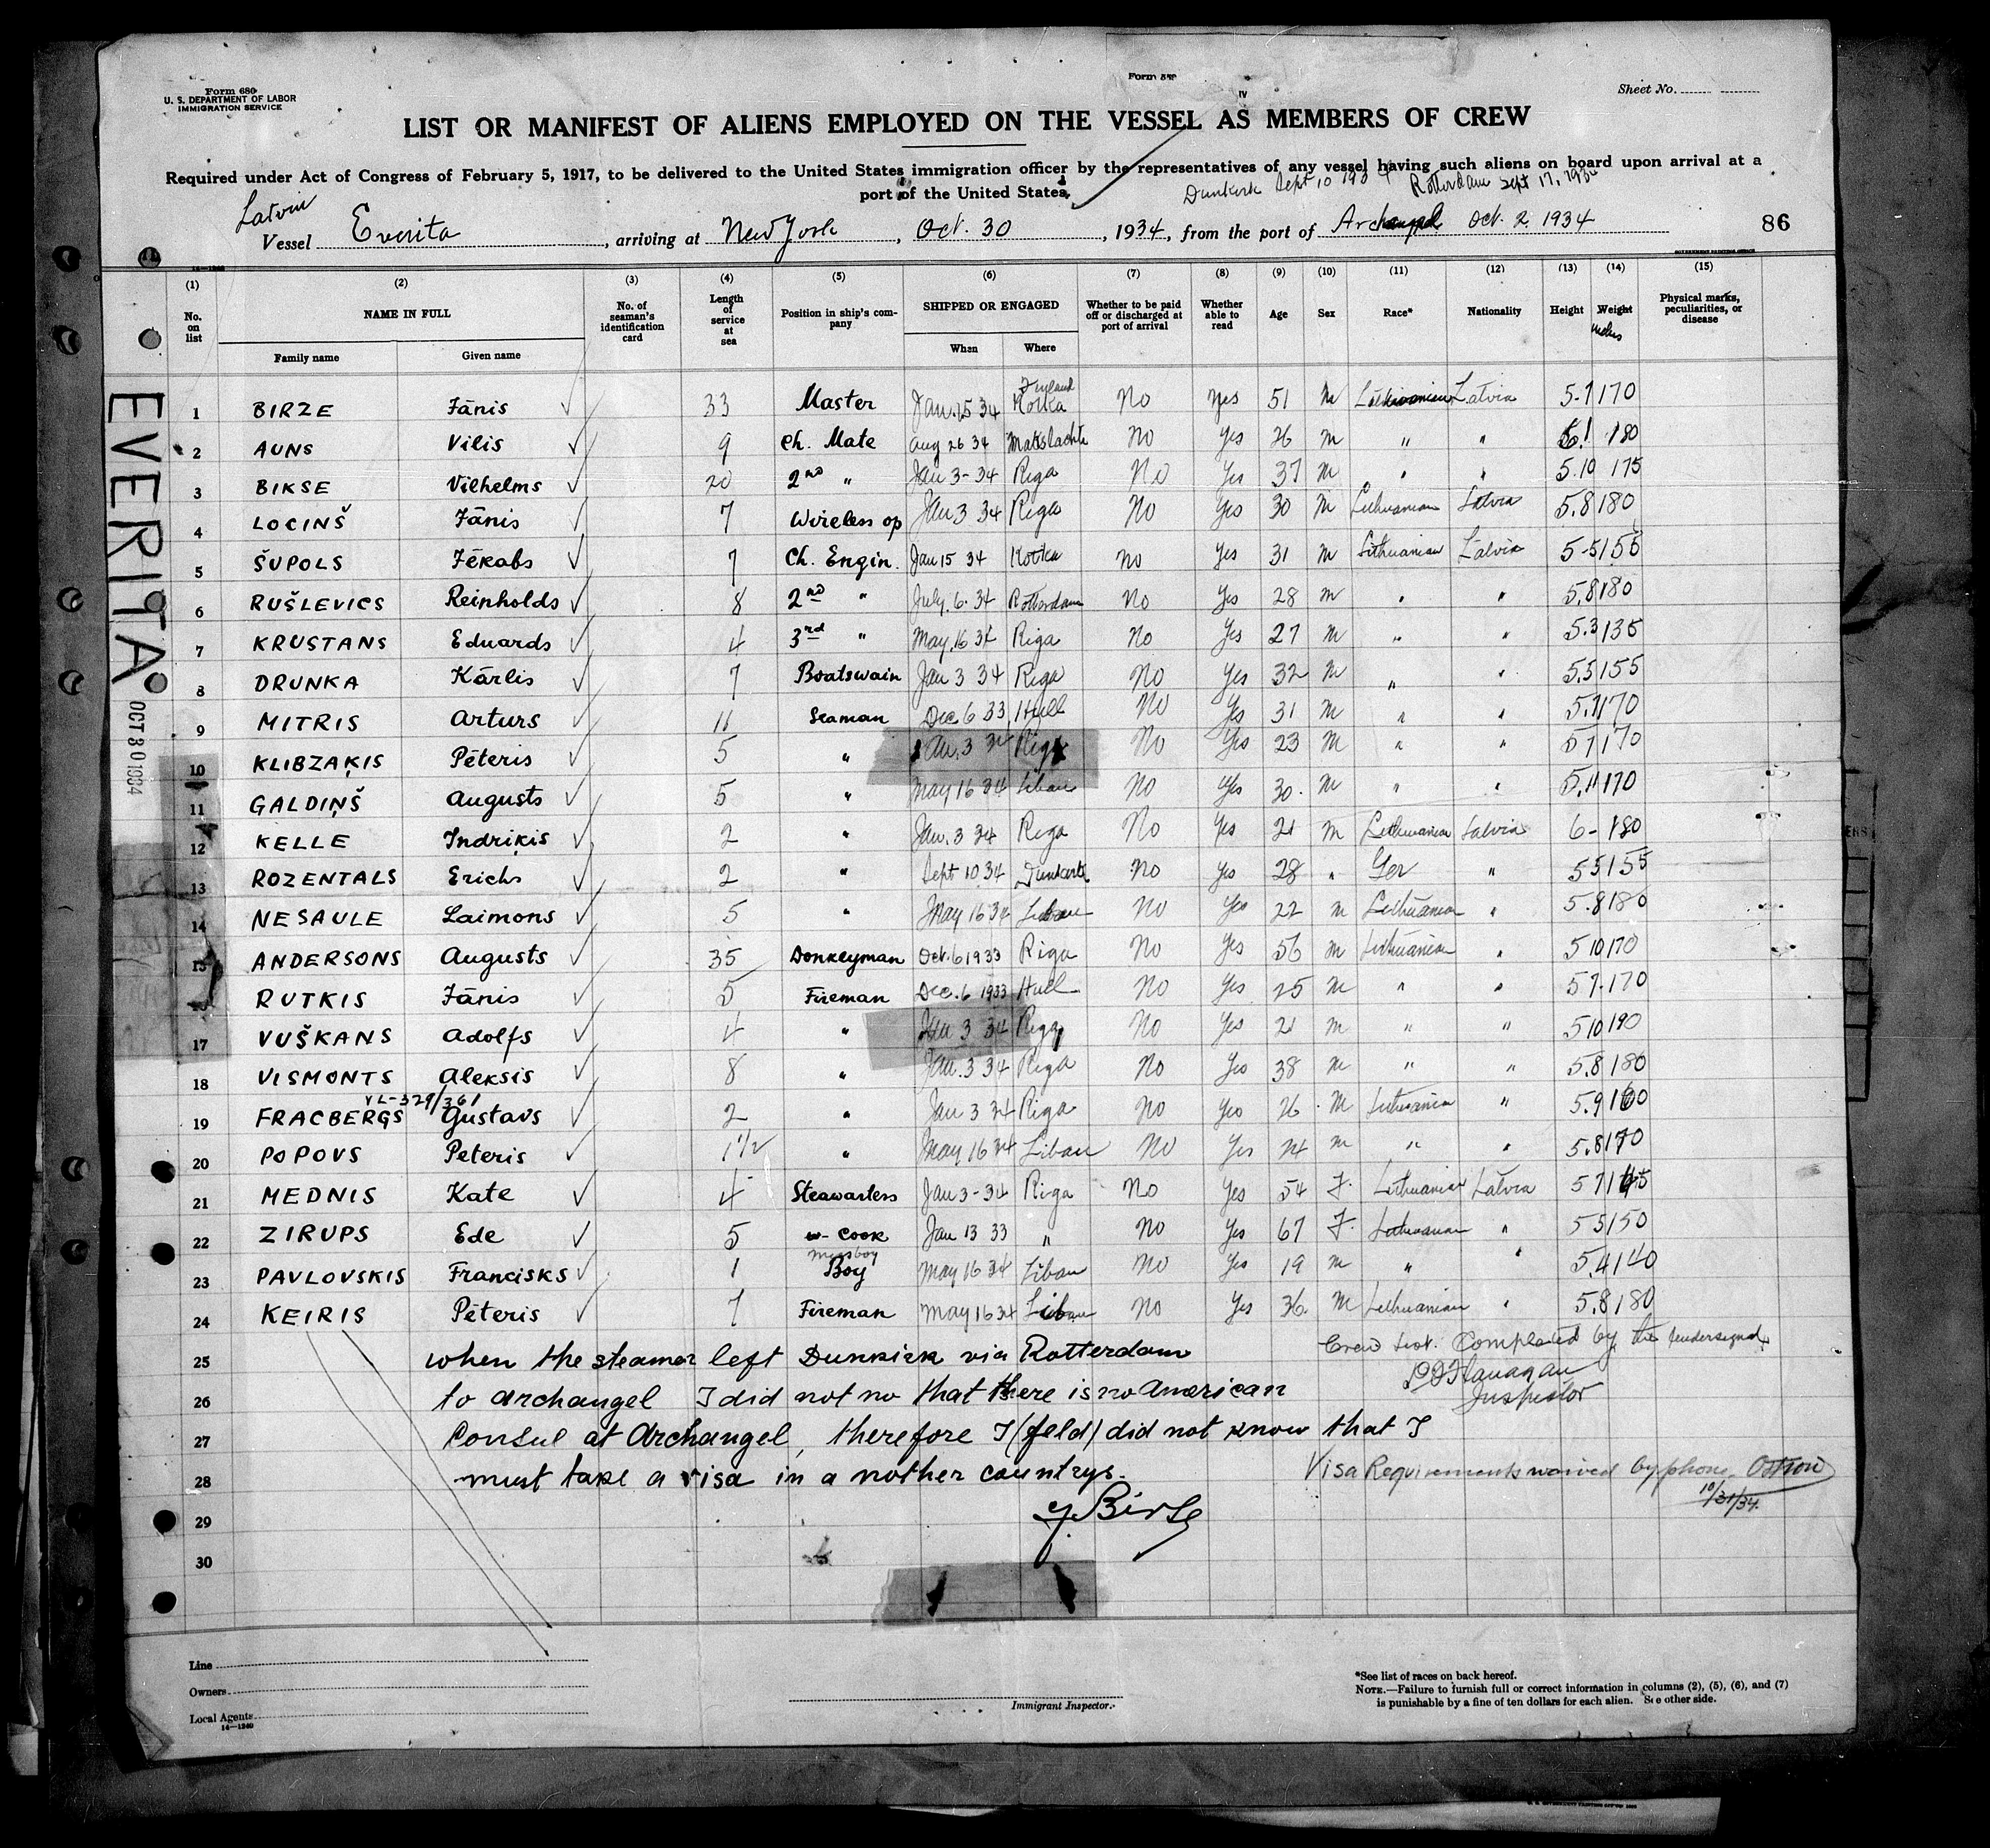 Form 680
U. S. DEPARTMENT OF LABOR
IMMIGRATION SERVICE
Sheet No.
LIST OR MANIFEST OF ALIENS EMPLOYED ON THE VESSEL AS MEMBERS OF CREW
Required under Act of Congress of February 5, 1917, to be delivered to the United States immigration officer by the representatives of any vessel having such aliens on board upon arrival at a
port of the United States
Dunkirk Sept 10 1934 Rotterdam Sept 17, 1934
Latvin
Vessel Everita, arriving at New York, Oct. 30, 1934, from the port of Archangel Oct. 2 1934
86
(1) (2) (3) (4) (5) (6) (7) (8) (9) (10) (11) (12) (13) (14) (15)
No. on list NAME IN FULL Family name Given name No. of seaman's identification card Length of service at sea Position in ship's company SHIPPED OR ENGAGED When Where Whether to be paid off or discharged at port of arrival Whether able to read Age Sex Race* Nationality Height Weight Physical marks, peculiarities, or disease
EVERITA
OCT 30 1934
1 BIRZE Jānis 33 Master Jan. 15 34 Finland Kotka No Yes 51 M Lithuanian Latvia 5-7 170
2 AUNS Vilis 9 Ch. Mate Aug 26 34 No Yes 26 M " " 6.1 180
3 BIKSE Vilhelms 20 2nd " Jan 3-34 Riga No Yes 37 M " " 5.10 175
4 LOCINŠ Jānis 7 Wireless op Jan 3 34 Riga No Yes 30 M Lithuanian Latvia 5.8 180
5 ŠUPOLS Jēkabs 7 Ch. Engin. Jan 15 34 Kotka No Yes 31 M Lithuanian Latvia 5-5 155
6 RUŠLEVICS Reinholds 8 2nd " July. 6. 34 Rotterdam No Yes 28 M " " 5.8 180
7 KRUSTANS Eduards 4 3rd " May. 16 34 Riga No Yes 27 M " " 5.3 135
8 DRUNKA Kārlis 7 Boatswain Jan 3 34 Riga No Yes 32 M " " 5.5 155
9 MITRIS Arturs 11 Seaman Dec. 6 33 Hull No Yes 31 M " " 5.7 170
10 KLIBZAĶIS Pēteris 5 " Jan. 3 34 Riga No Yes 23 M " " 5 7 170
11 GALDIŅŠ Augusts 5 " May 16 34 Libau No Yes 30 M " " 5.11 170
12 KELLE Indriķis 2 " Jan. 3 34 Riga No Yes 21 M Lithuanian Latvia 6- 180
13 ROZENTALS Erichs 2 " Sept 10 34 Dunkerk No Yes 28 " Ger " 5 5 155
14 NESAULE Laimons 5 " May 16 34 Libau No Yes 22 M Lithuanian " 5.8 180
15 ANDERSONS Augusts 35 Donkeyman Oct. 6 1933 Riga No Yes 56 M Lithuanian " 5 10 170
RUTKIS Jānis 5 Fireman Dec. 6 1933 Hull No Yes 25 M " " 5 7. 170
17 VUŠKANS Adolfs 4 " Jan 3 34 Riga No Yes 21 M " " 5 10 190
18 VISMONTS Aleksis 8 " Jan. 3 34 Riga No Yes 38 M " " 5.8 180
VL-329/361
19 FRACBERGS Gustavs 2 " Jan 3 34 Riga No Yes 26 M Lithuanian " 5.9 160
20 POPOVS Peteris 1 1/2 " May 16 34 Libau No Yes 24 M " " 5.8 170
21 MEDNIS Kate 4 Steawartess Jan 3-34 Riga No Yes 54 F. Lithuanian Latvia 5 7
22 ZIRUPS Ede 5 Cook Jan 13 33 " No Yes 67 F. Lithuanian " 5 5 150
23 PAVLOVSKIS Francisks 1 messboy Boy May 16 34 Libau No Yes 19 M " " 5.4 140
24 KEIRIS Pēteris 7 Fireman May 16 34 Libau No Yes 36 M Lithuanian " 5.8 180
25 when the steamer left Dunkirk via Rotterdam
Crew List. Completed by the undersigned
26 to Archangel I did not no that there is no American
Flanagan
Inspector
27 Consul at Archangel, therefore I (feld) did not know that I
28 must take a visa in a nother countrys.
Visa Requirements waived by phone
10/31/34
29 J. Birze
30
Line
Owners
Local Agents
14-1240
Immigrant Inspector.
*See list of races on back hereof.
NOTE.—Failure to furnish full or correct information in columns (2), (5), (6), and (7)
is punishable by a fine of ten dollars for each alien. See other side.